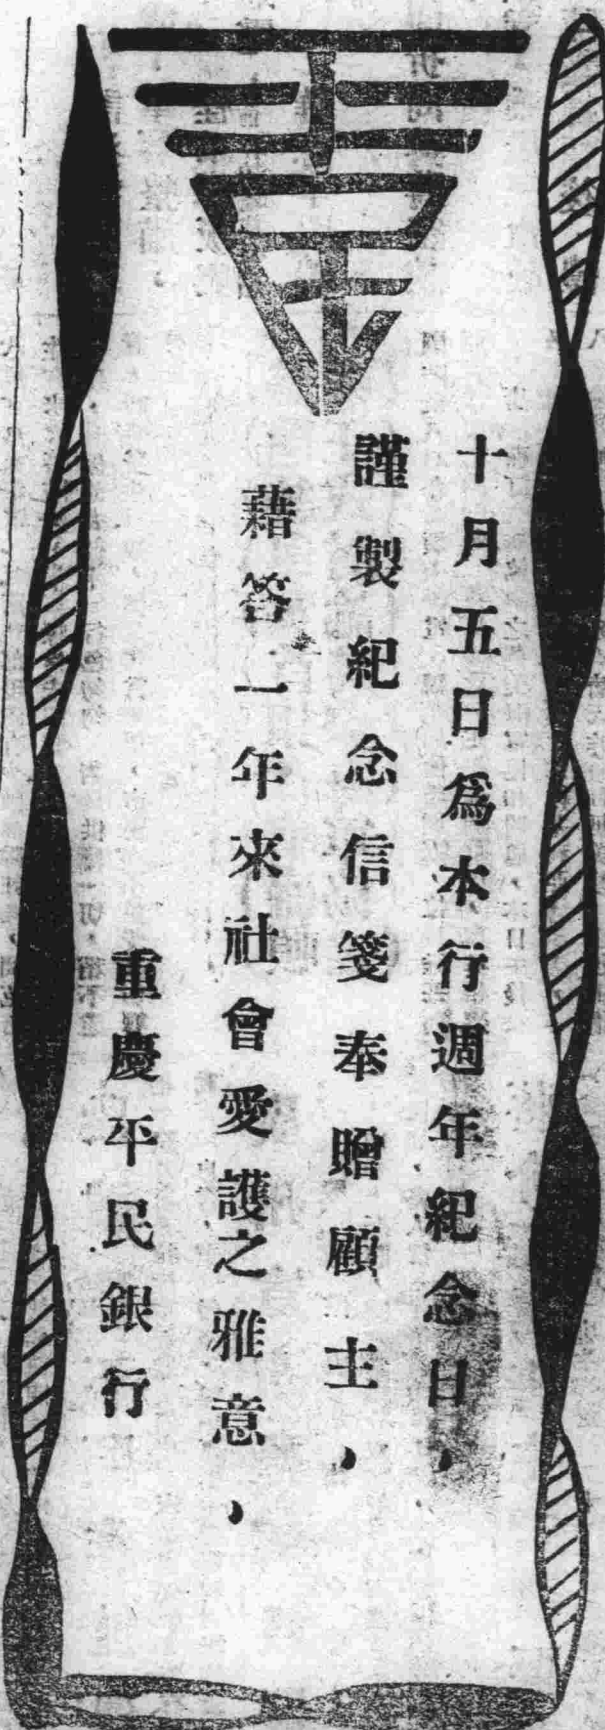 十月五日爲本行週年紀念日，
謹製紀念信箋奉贈顧主，
藉答一年來社會愛護之雅意，
重慶平民銀行